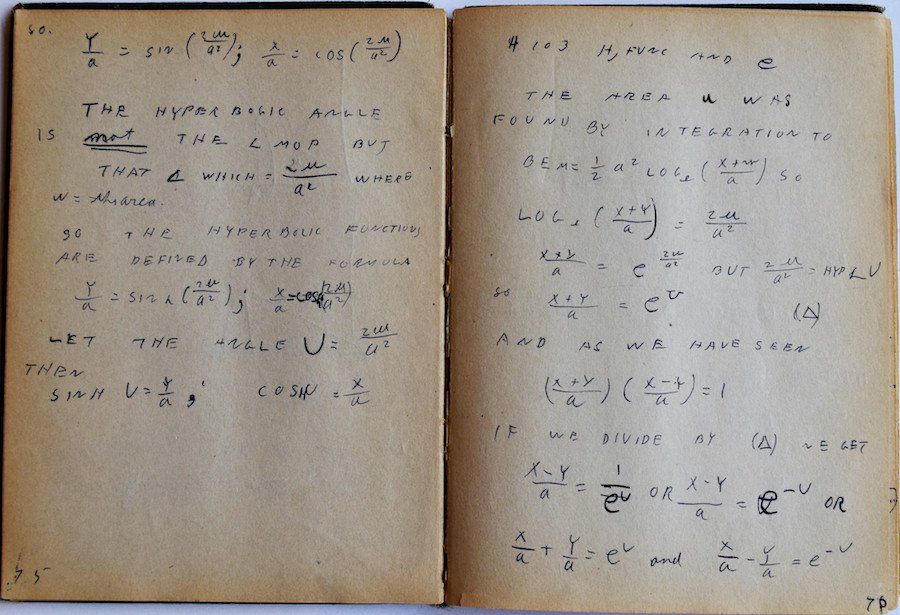 so.
Y/a = SIN (2u/a²); x/a = COS (2u/a²)
THE HYPERBOLIC ANGLE
IS not THE ∠ MOP BUT
THAT ∠ WHICH = 2u/a² WHERE
u = the area.
SO THE HYPERBOLIC FUNCTIONS
ARE DEFINED BY THE FORMULA
Y/a = SINh (2u/a²); x/a = COSh (2u/a²)
LET THE ANGLE U = 2u/a²
THEN
SINH U = Y/a; COSH U = X/a
75
# 103 H, FUNC AND e
THE AREA u WAS
FOUND BY INTEGRATION TO
BE u = 1/2 a² LOGe (X+Y/a) SO
LOGe (X+Y/a) = 2u/a²
X+Y/a = e^(2u/a²) BUT 2u/a² = HYP ∠ U
SO X+Y/a = e^U (Δ)
AND AS WE HAVE SEEN
(X+Y/a) (X-Y/a) = 1
IF WE DIVIDE BY (Δ) WE GET
X-Y/a = 1/e^U OR X-Y/a = e^-U OR
X/a + Y/a = e^U and X/a - Y/a = e^-U
76